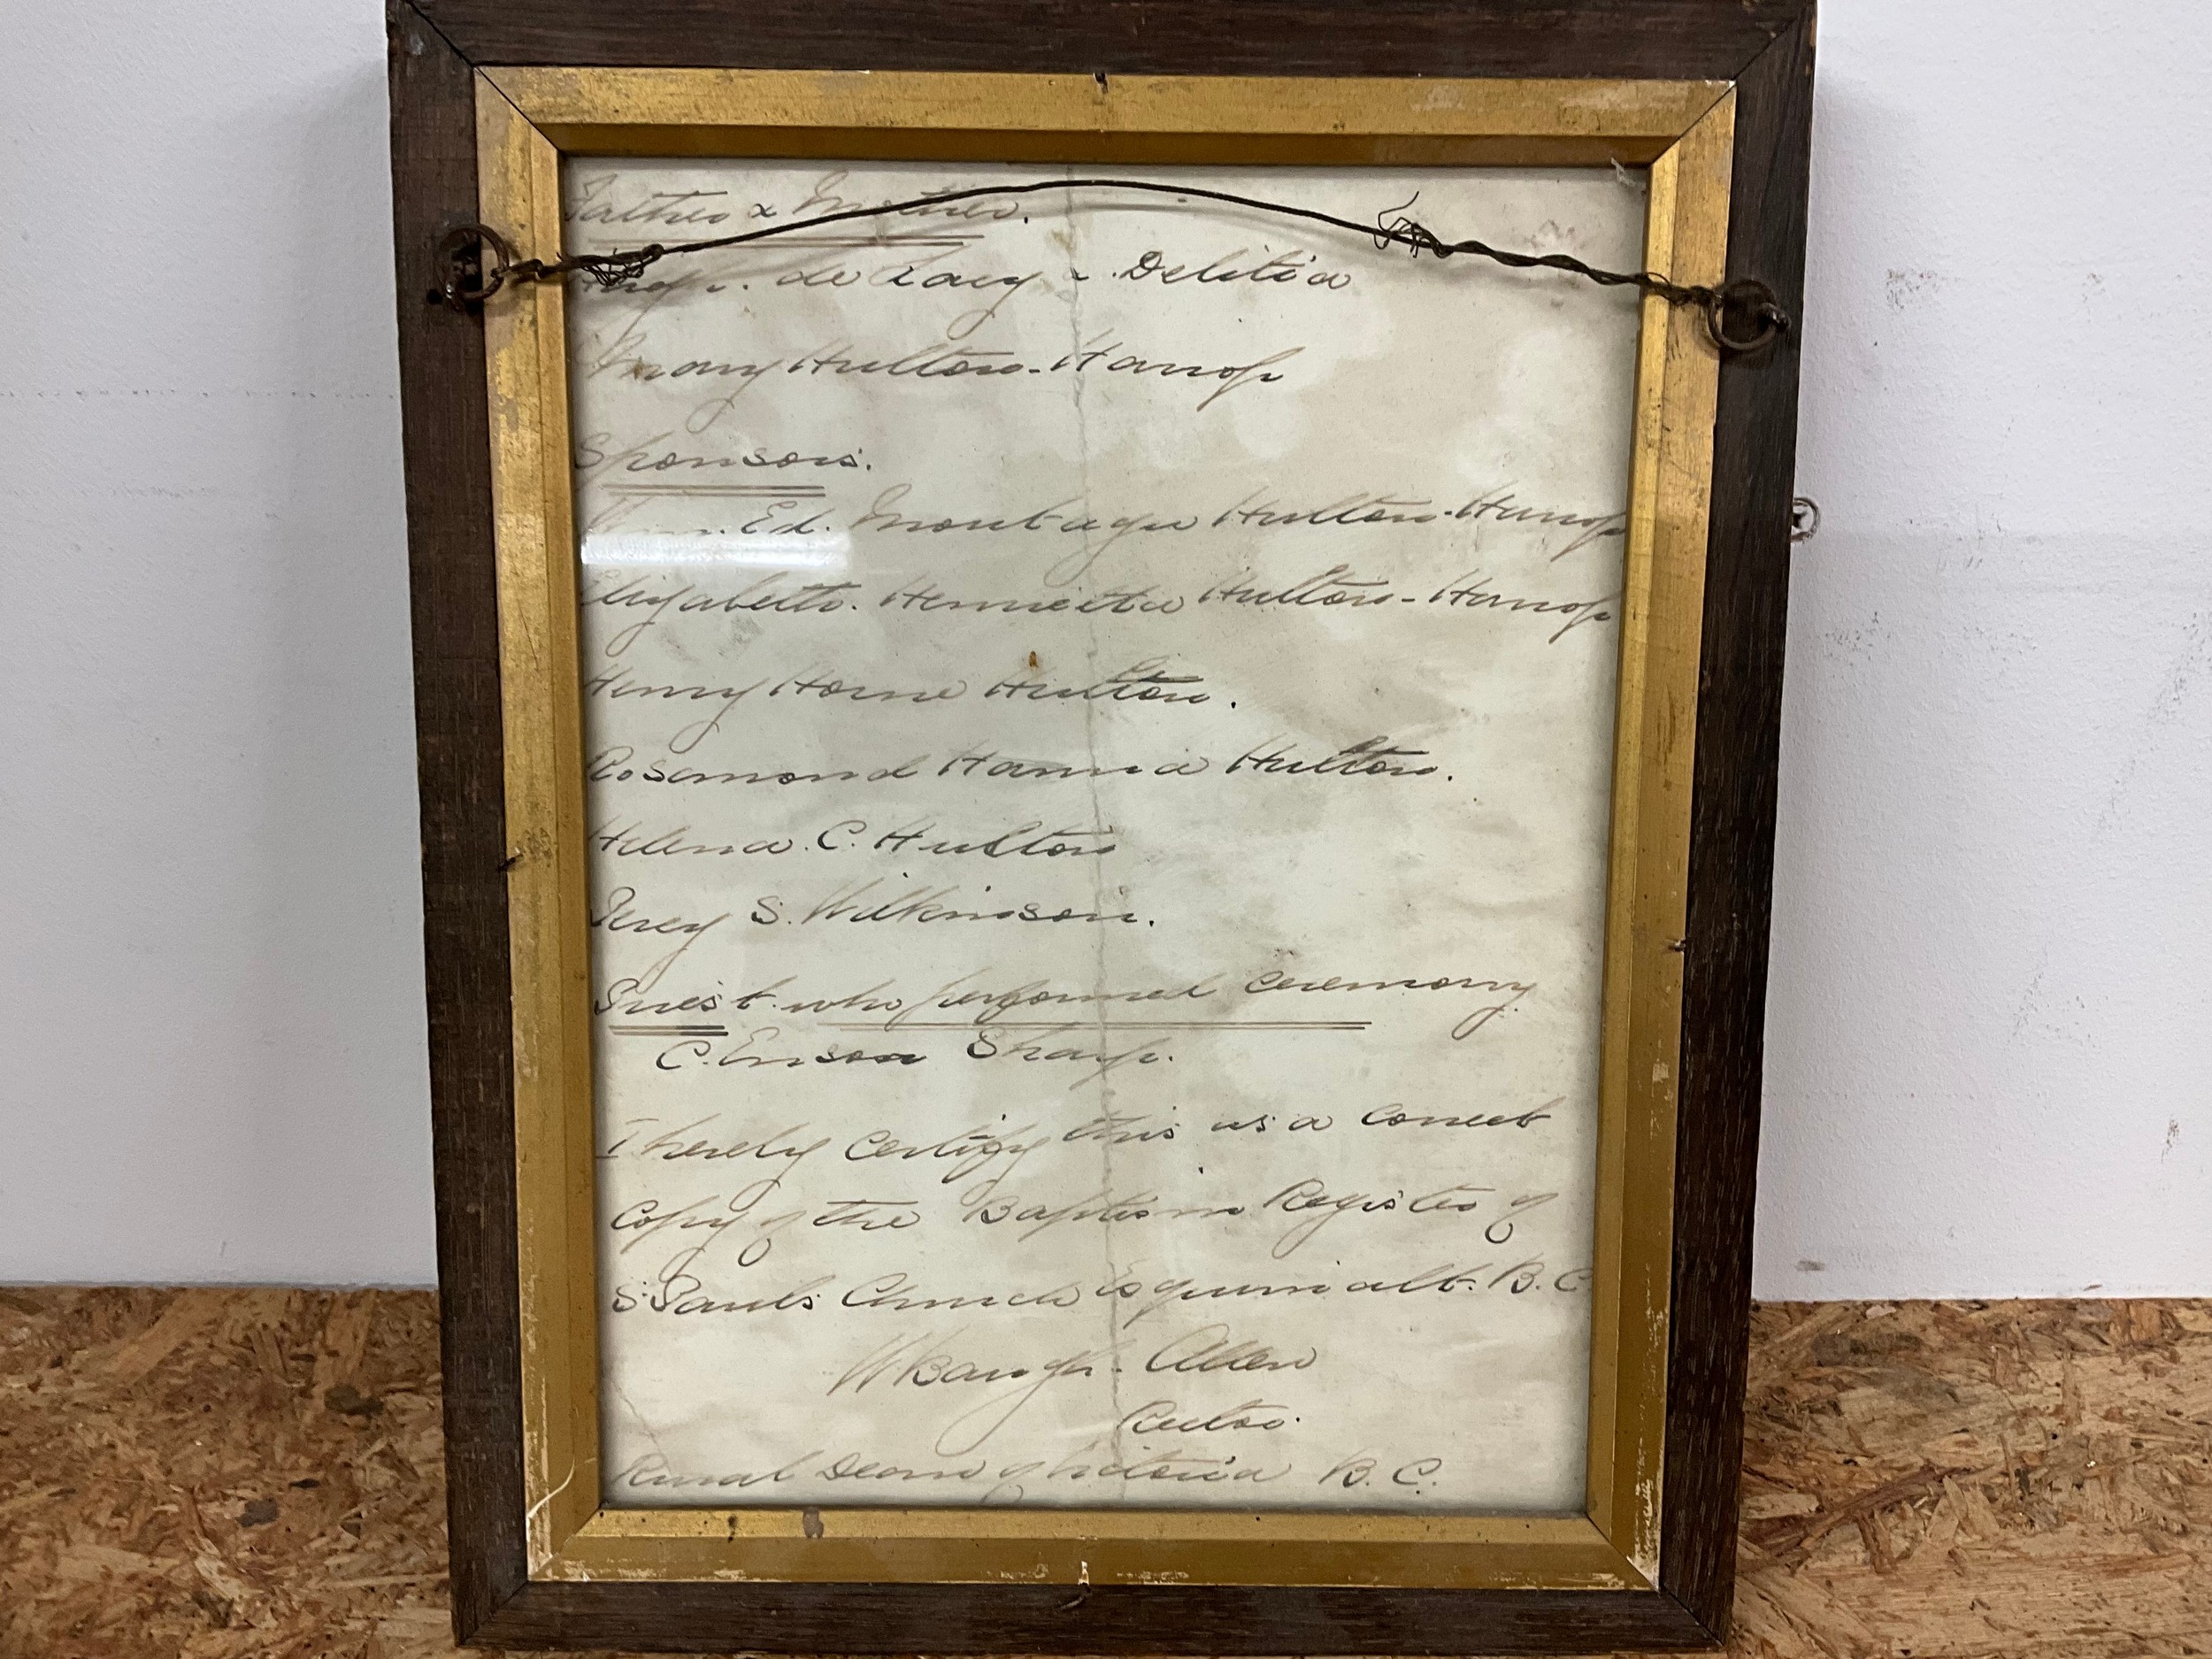 Father & Mother.
Hugh. de Lacy & Delitia
Mary Hulton-Harrop
Sponsors.
Wm. Ed. Montagu Hulton-Harrop
Elizabeth. Henrietta Hulton-Harrop
Henry Horne Hulton.
Rosamond Hanna Hulton.
Helena. C. Hulton
Percy S. Wilkinson.
Priest who performed ceremony
C. Ensor Sharp.
I hereby certify this is a correct
Copy of the Baptism Register of
S. Paul's Church Esquimalt. B.C
W Baugh. Allen
Rector.
Rural Dean of Victoria B.C.